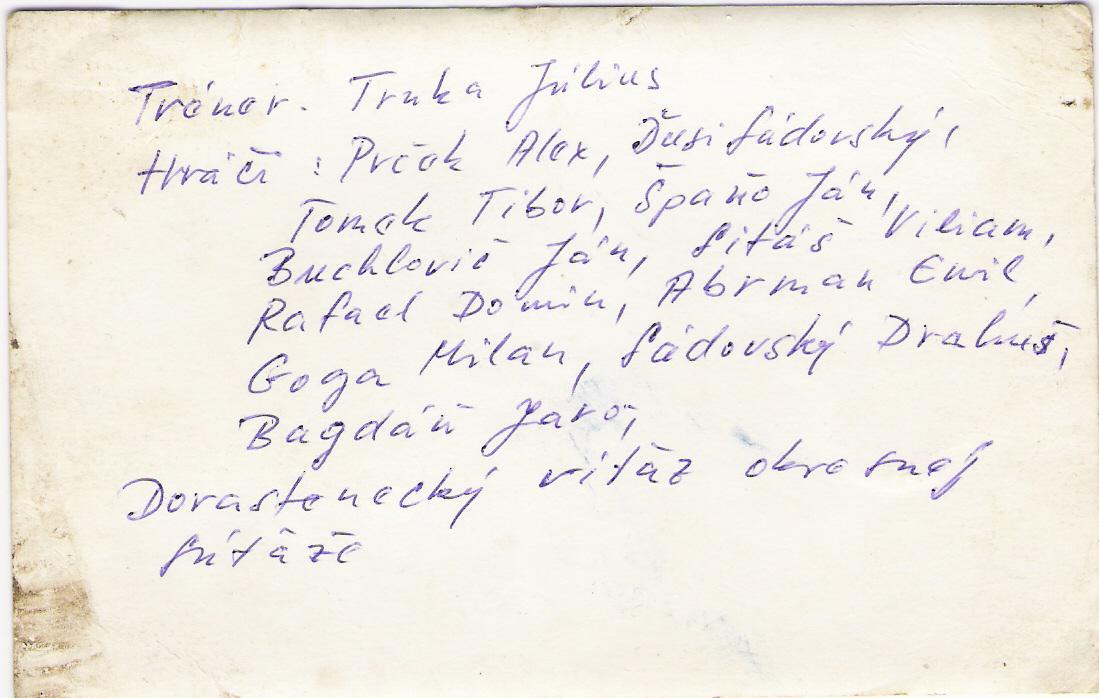 Tréner. Trnka Július
Hráči : Prček Alex, Ďusi Sádovský,
Tomek Tibor, Špaňo Ján,
Buchlovič Ján, Sitáš Viliam,
Rafael Domin, Abrman Emil,
Goga Milan, Sádovský
Bagdáň Jaro,
Dorastenecký víťaz okresnej
sútaže